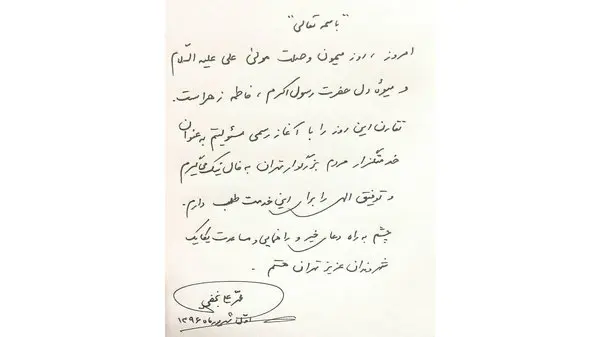 "باسمه تعالی"
امروز، روز میمون وصلت مولی علی علیه السّلام
و میوهٔ دل حضرت رسول اکرم، فاطمه زهراست.
تقارن این روز را با آغاز رسمی مسئولیتم به عنوان
خدمتگزار مردم بزرگوار تهران به فال نیک می‌گیرم
و توفیق الهی را برای این خدمت طلب دارم.
چشم به راه دعای خیر و راهنمایی و مساعدت یکایک
شهروندان عزیز تهران هستم.
محمدعلی نجفی
اوّل شهریور ماه ۱۳۹۶